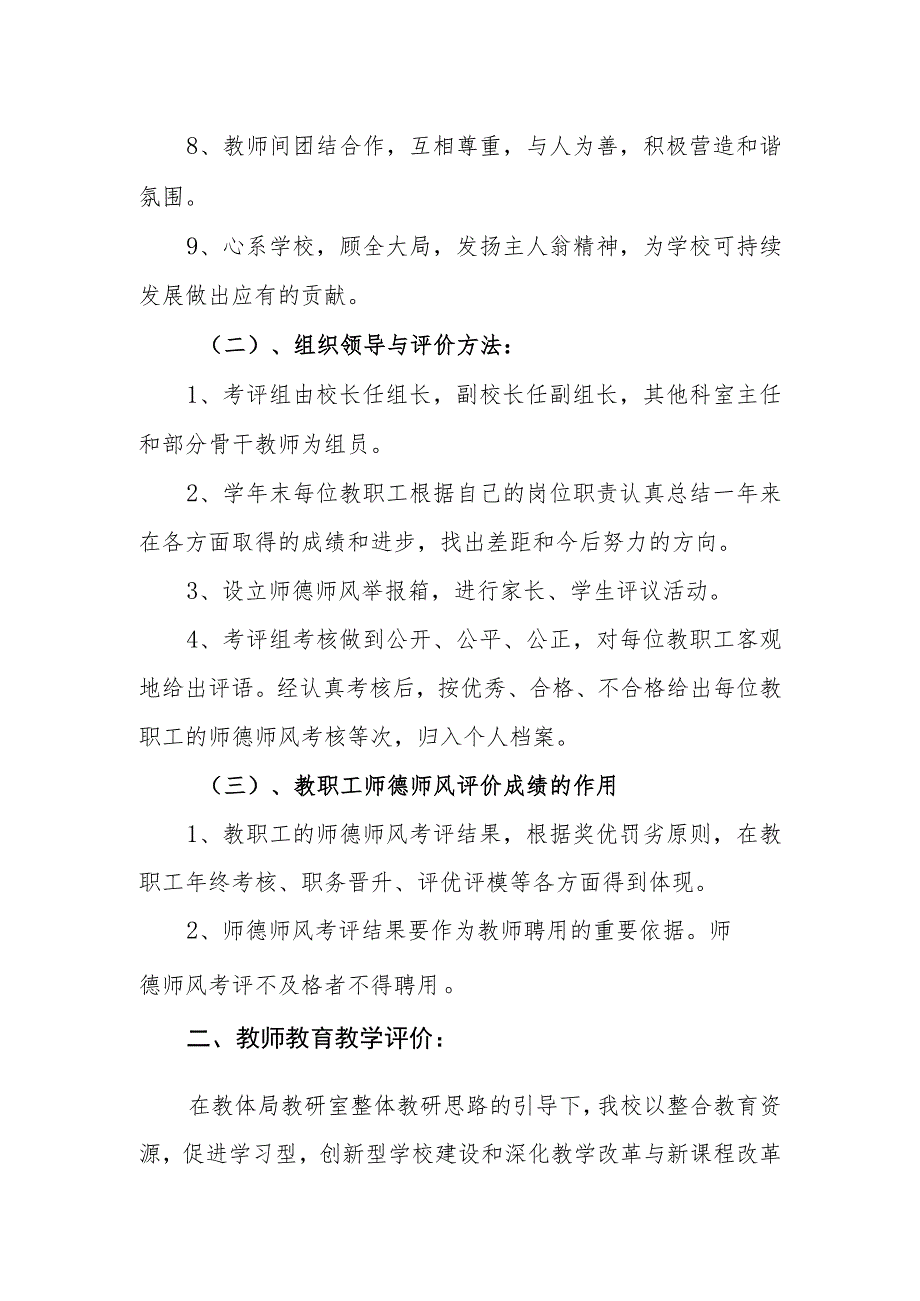 8、教师间团结合作，互相尊重，与人为善，积极营造和谐
氛围。
9、心系学校，顾全大局，发扬主人翁精神，为学校可持续
发展做出应有的贡献。
（二）、组织领导与评价方法：
1、考评组由校长任组长，副校长任副组长，其他科室主任
和部分骨干教师为组员。
2、学年末每位教职工根据自己的岗位职责认真总结一年来
在各方面取得的成绩和进步，找出差距和今后努力的方向。
3、设立师德师风举报箱，进行家长、学生评议活动。
4、考评组考核做到公开、公平、公正，对每位教职工客观
地给出评语。经认真考核后，按优秀、合格、不合格给出每位教
职工的师德师风考核等次，归入个人档案。
（三）、教职工师德师风评价成绩的作用
1、教职工的师德师风考评结果，根据奖优罚劣原则，在教
职工年终考核、职务晋升、评优评模等各方面得到体现。
2、师德师风考评结果要作为教师聘用的重要依据。师
德师风考评不及格者不得聘用。
二、教师教育教学评价：
在教体局教研室整体教研思路的引导下，我校以整合教育资
源，促进学习型，创新型学校建设和深化教学改革与新课程改革